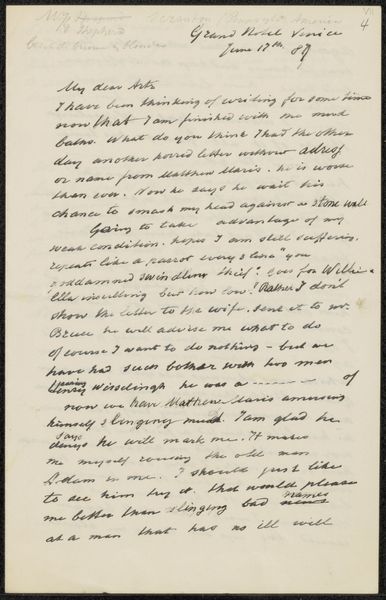 4
Grand Hotel Venice
June 17th. 87
My dear Arts
I have been thinking of writing for some time
now that I am finished with the mud
baths. What do you think I had the other
day another horrid letter without adress
or name from Matthew Maris. he is worse
than ever. Now he says he wait his
chance to smash my head against a stone wall
Going to take advantage of my
weak condition. hopes I am still suffering.
repeats like a parrot every time "you
goddamned swindling thief". goes for Willie &
Ella insulting but how low! Rather I don't
show the letter to the wife. sent it to mr.
Bruce he will advise me what to do
of course I want to do nothing - but we
have had such bother with two men
Wisselingh he was a - - - - - - of
now we have Matthew Maris amusing
himself slinging mud. I am glad he
says
he will mark me. It makes
me myself rousing the old man
Adam in me. I should just like
to see him try it. that would please
me better than slinging bad names
at a man that has no ill will